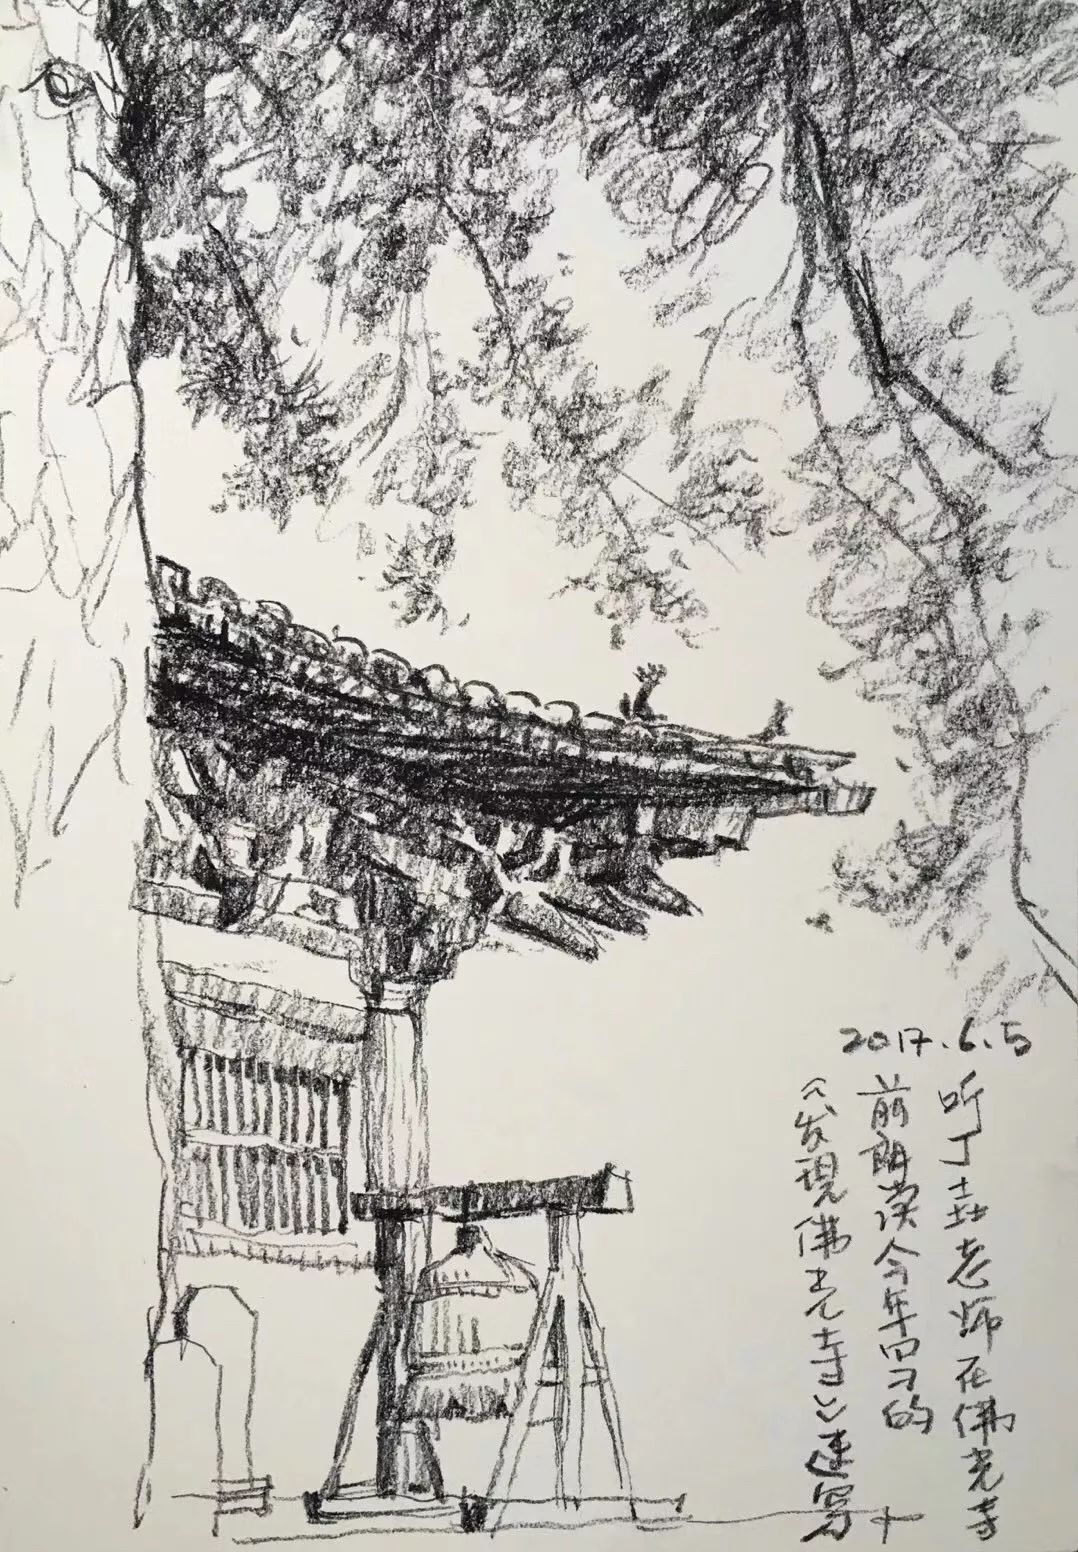 2017.6.5
听丁垚老师在佛光寺
前朗读今年四月的
《发現佛光寺》速写